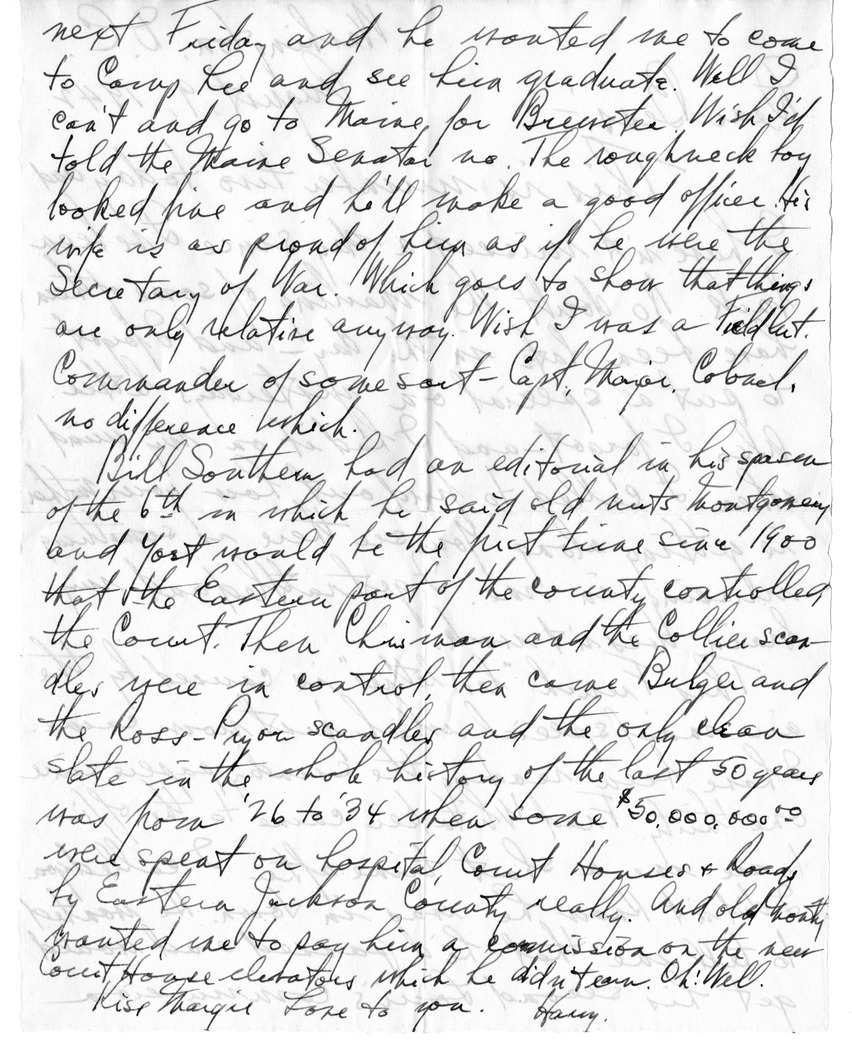 next Friday and he wanted me to come
to Camp Lee and see him graduate. Well I
can't and go to Maine for Brewster. Wish I'd
told the Maine Senator no. The roughneck boy
looked fine and he'll make a good officer. His
wife is as proud of him as if he were the
Secretary of War. Which goes to show that things
are only relative anyway. Wish I was a Field Art.
Commander of some sort - Capt, Major, Colonel,
no difference which.
Bill Southern had an editorial in his
of the 6th in which he said old nuts Montgomery
and Yost would be the first time since 1900
that the Eastern part of the county controlled
the Court. Then Chrisman and the Collier scan-
dles were in control, then came Bulger and
the Ross-Pryor scandles and the only clean
slate in the whole history of the last 50 years
was from '26 to '34 when some $50,000,000.00
were spent on hospital, Court Houses & Roads
by Eastern Jackson County really. And old monty
wanted me to pay him a commission on the new
Court House elevators, which he didn't earn. Oh! Well.
Kiss Margie Love to you. Harry.